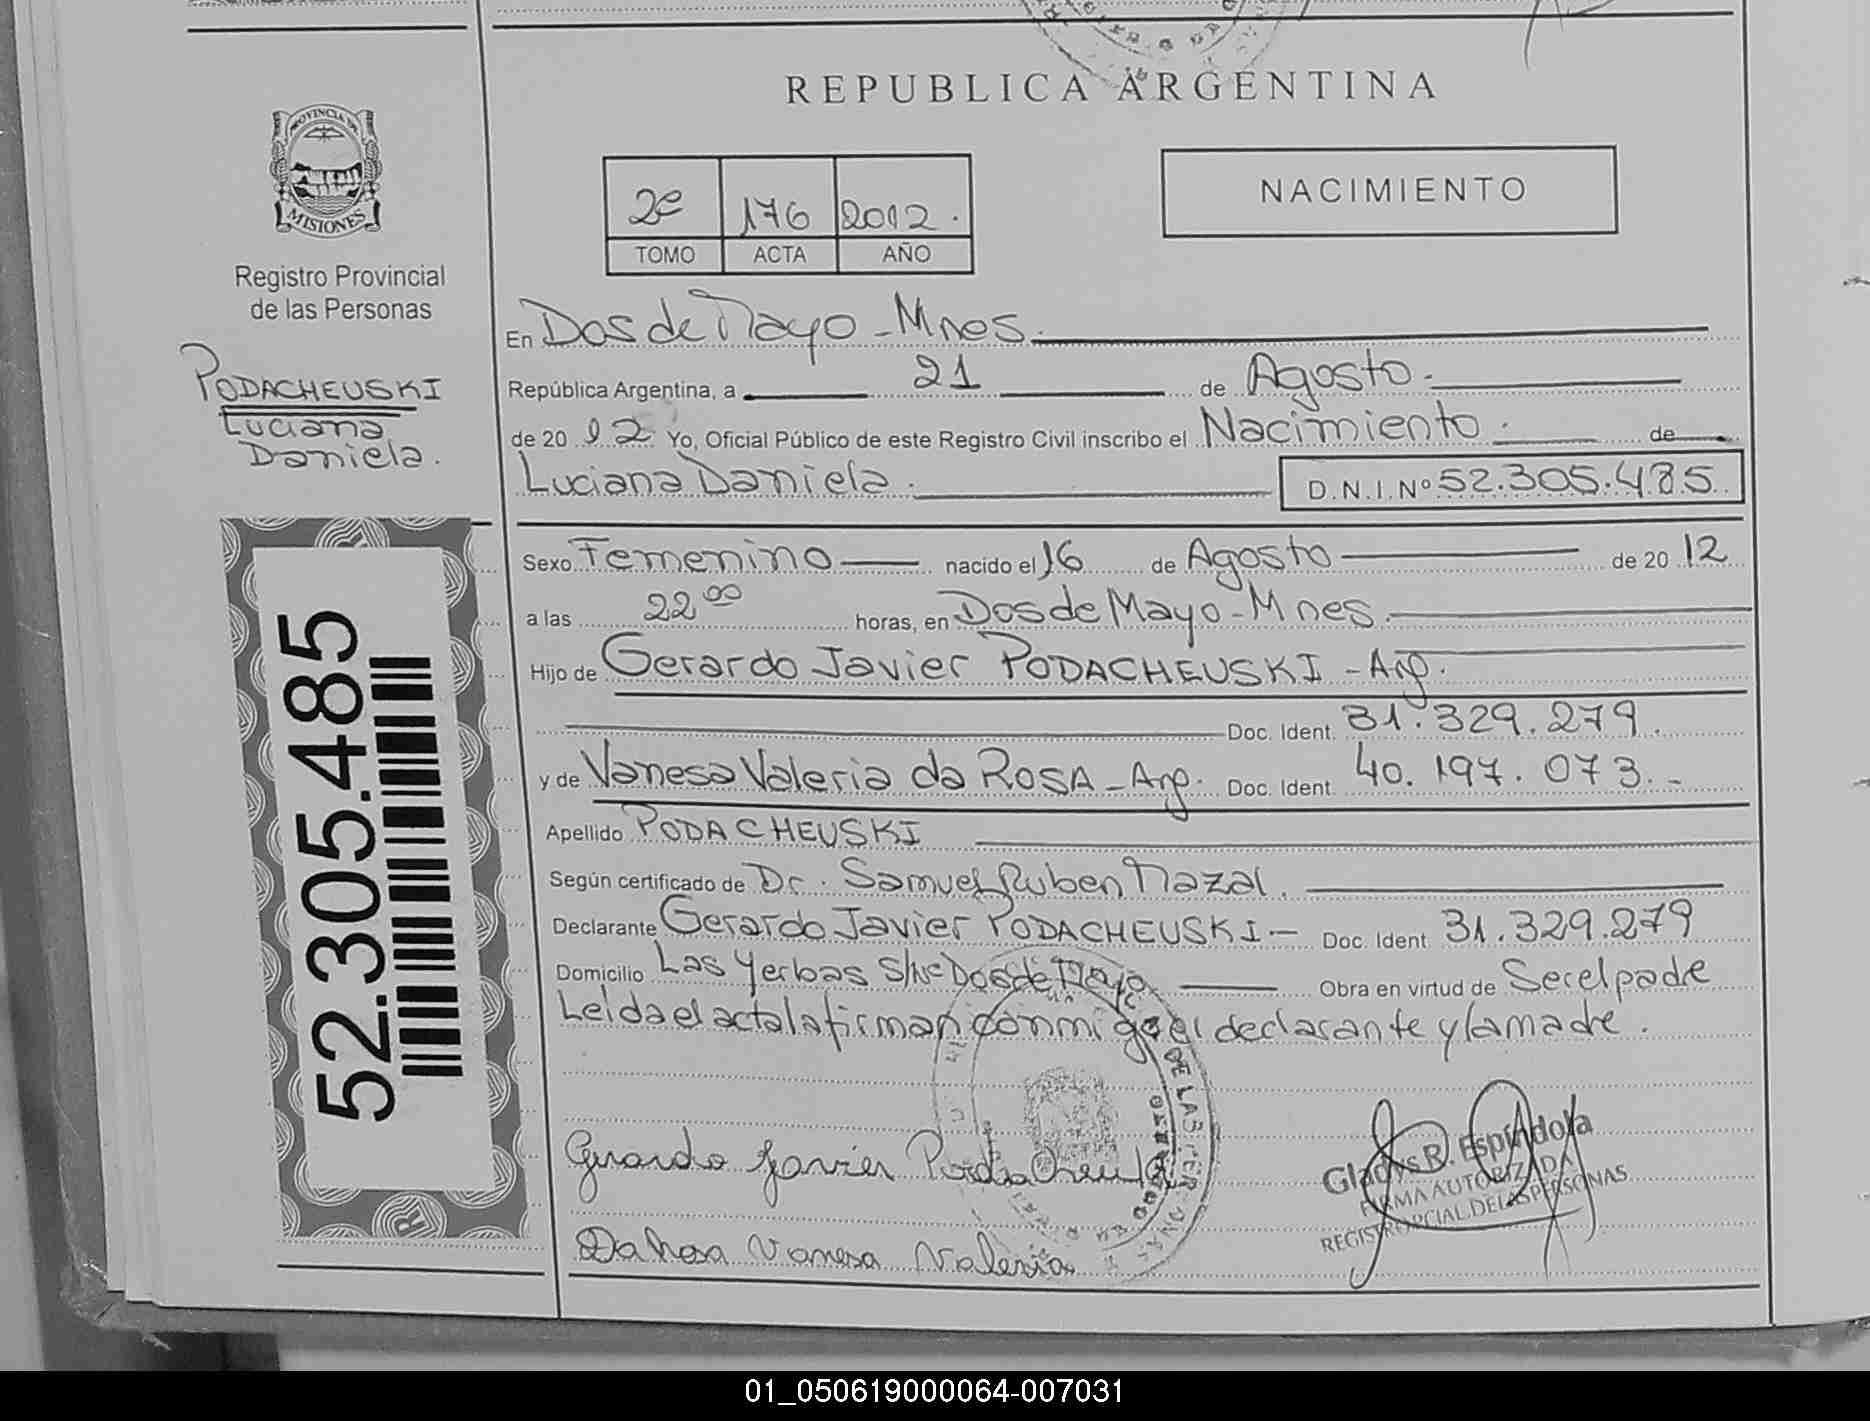 REPUBLICA ARGENTINA
PROVINCIA DE
MISIONES
Registro Provincial
de las Personas
PODACHEUSKI
Luciana
Daniela.
52.305.485
2º 176 2012.
TOMO ACTA AÑO
NACIMIENTO
En Dos de Mayo - Mnes.
República Argentina, a 21 de Agosto.
de 20 12 Yo, Oficial Público de este Registro Civil inscribo el Nacimiento. de
Luciana Daniela. D.N.I.Nº 52.305.485
Sexo Femenino nacido el 16 de Agosto de 20 12
a las 22 00 horas, en Dos de Mayo - Mnes.
Hijo de Gerardo Javier PODACHEUSKI - Arg.
Doc. Ident. 31.329.279.
y de Vanesa Valeria da ROSA - Arg. Doc. Ident. 40.197.073.-
Apellido PODACHEUSKI
Según certificado de Dr. Samuel Ruben Nazal.
Declarante Gerardo Javier PODACHEUSKI - Doc. Ident. 31.329.279
Domicilio Las Yerbas S/Nº Dos de Mayo Obra en virtud de Ser el padre
Leida el acta la firman conmigo el declarante y la madre.
Gerardo Javier
Gladys R. Espíndola
FIRMA AUTORIZADA
REGISTRO PCIAL DE LAS PERSONAS
Da Rosa Vanesa Valeria
01_050619000064-007031